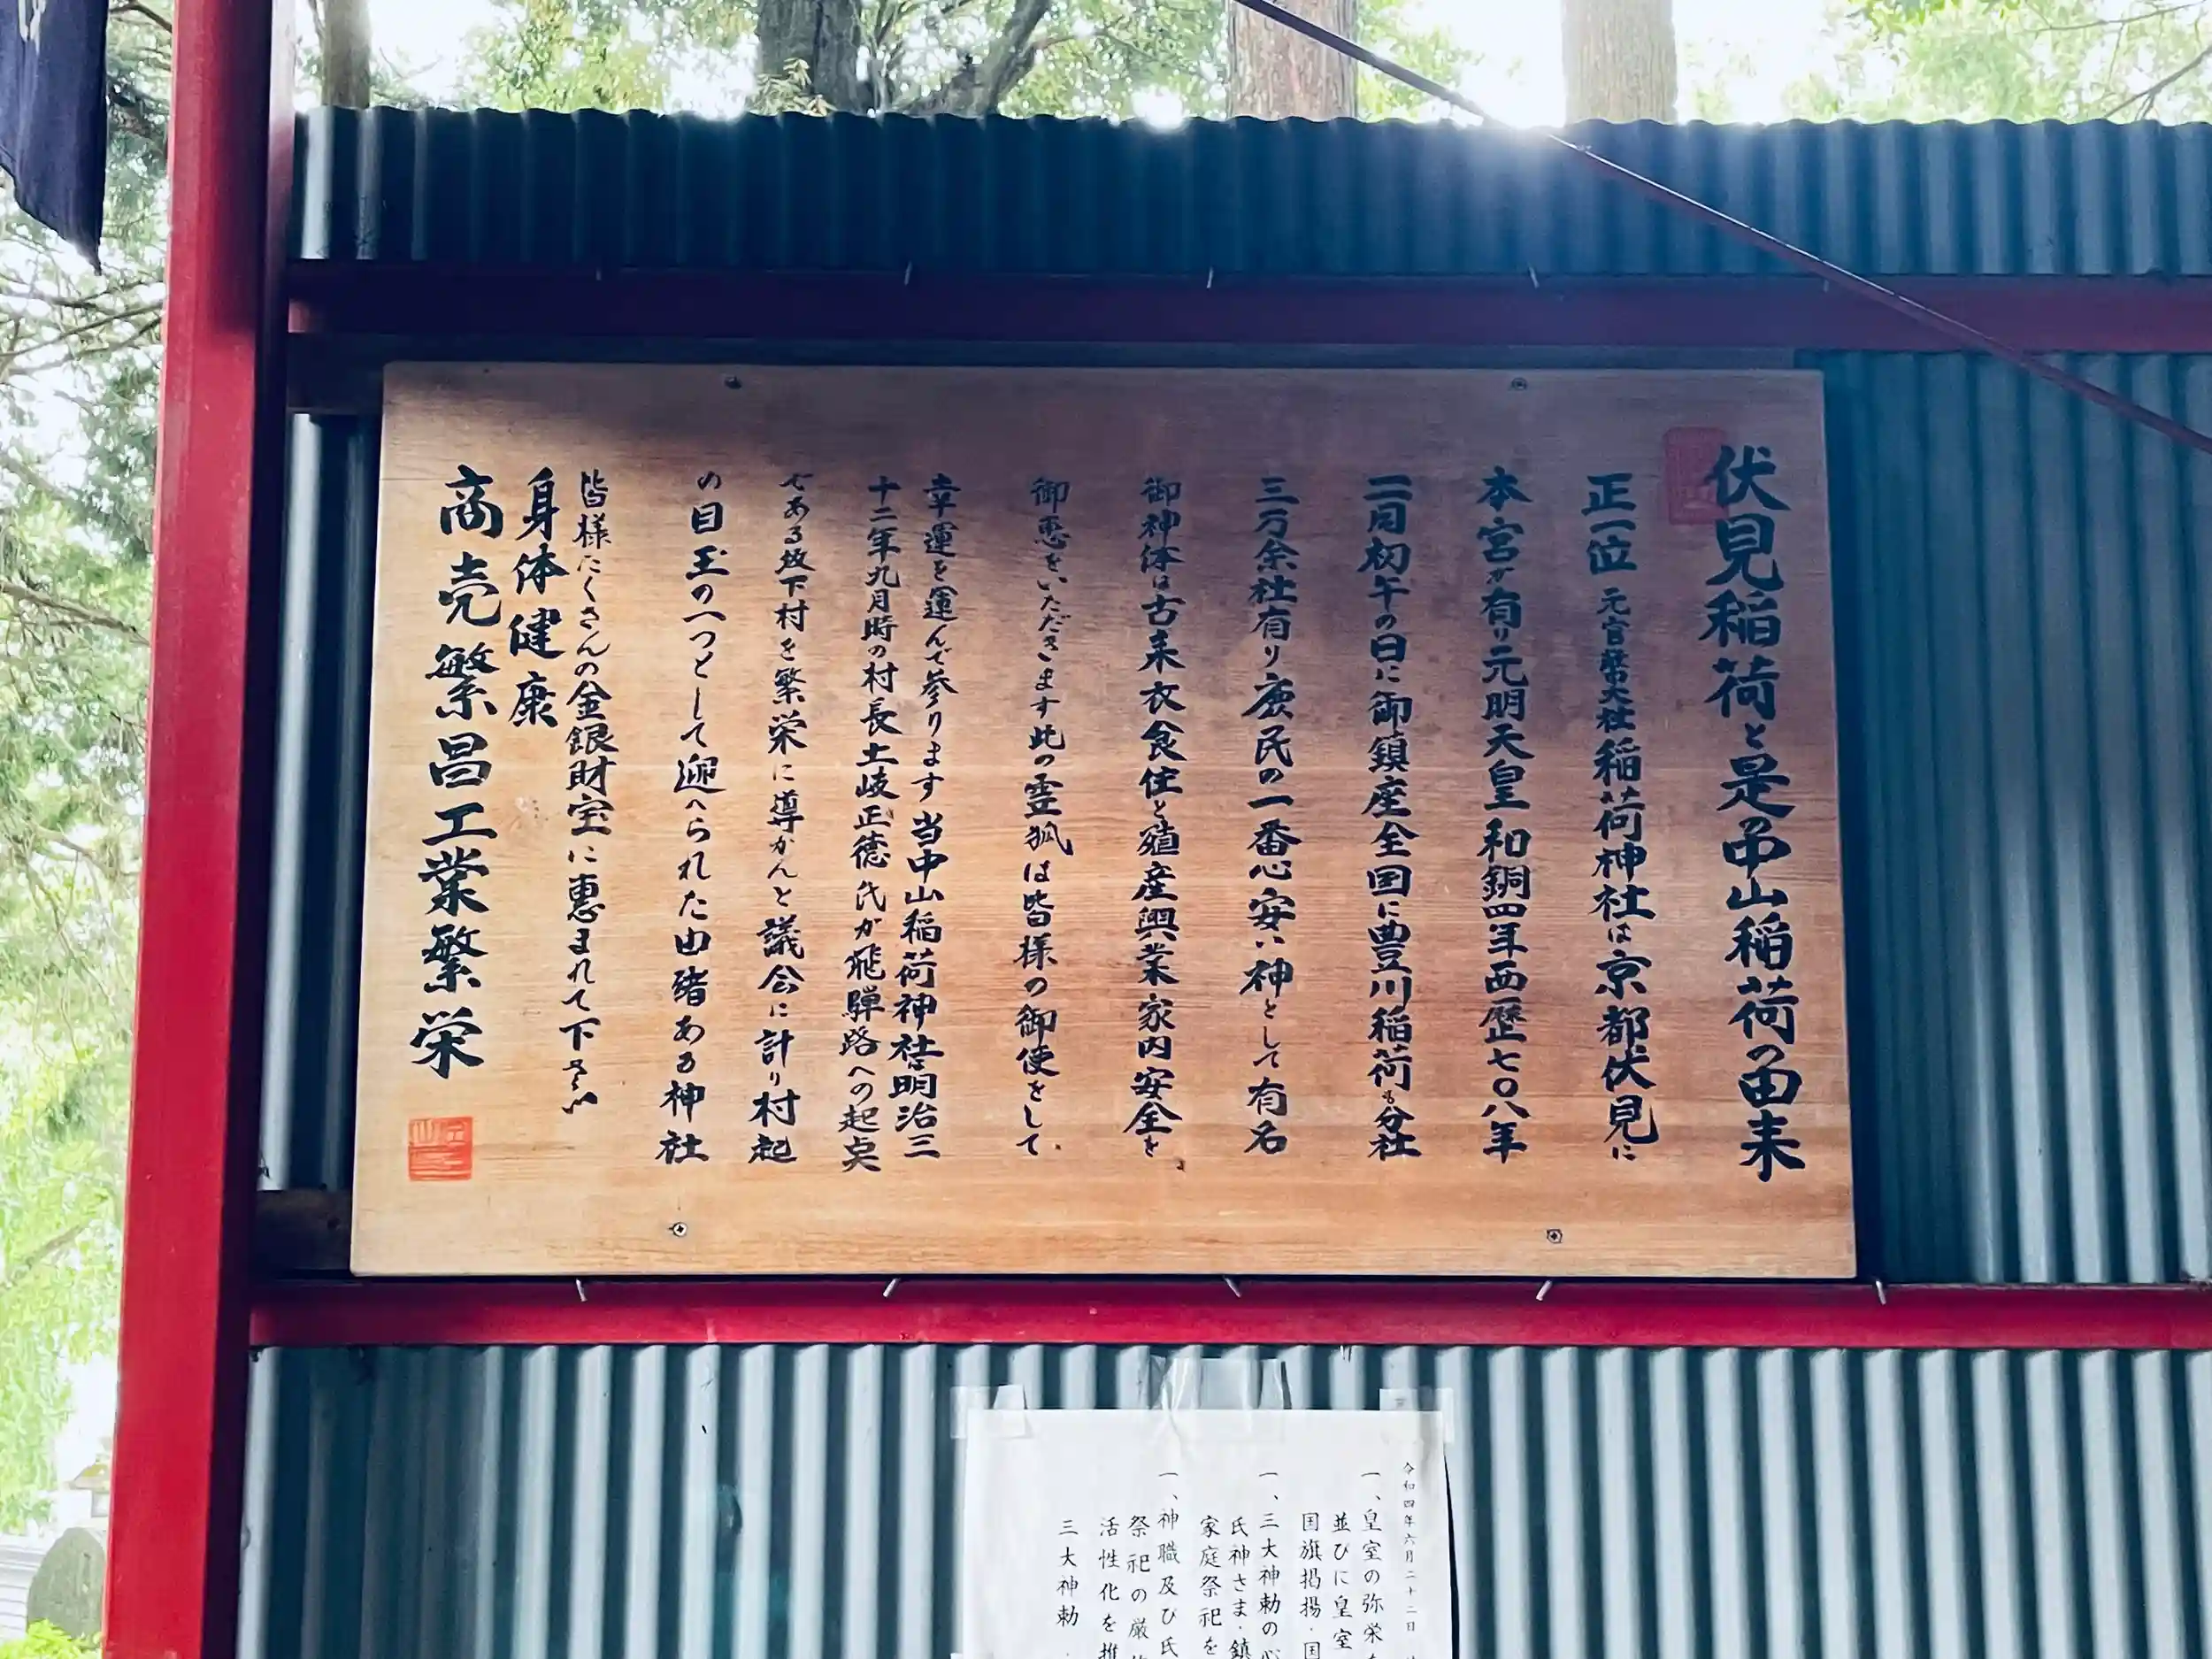 伏見稲荷と是の中山稲荷の由来
正一位 元官幣大社稲荷神社は京都伏見に
本宮が有り元明天皇和銅四年西歴七〇八年
二月初午の日に御鎮座全国に豊川稲荷も分社
三万余社有り庶民の一番心安い神として有名
御神体は古来衣食住と殖産興業家内安全を
御恵をいただきます此の霊狐は皆様の御使をして
幸運を運んで参ります当中山稲荷神社は明治三
十二年九月時の村長土岐正徳氏が飛騨路への起点
である坂下村を繁栄に導かんと議会に計り村起
の目玉の一つとして迎へられた由緒ある神社
皆様たくさんの金銀財宝に恵まれて下さい
身体健康
商売繁昌工業繁栄
令和四年六月二十二日
一、皇室の弥栄
並びに皇室
国旗掲揚・国
一、三大神勅の心
氏神さま・鎮
家庭祭祀を
一、神職及び氏
祭祀の厳
活性化を推
三大神勅